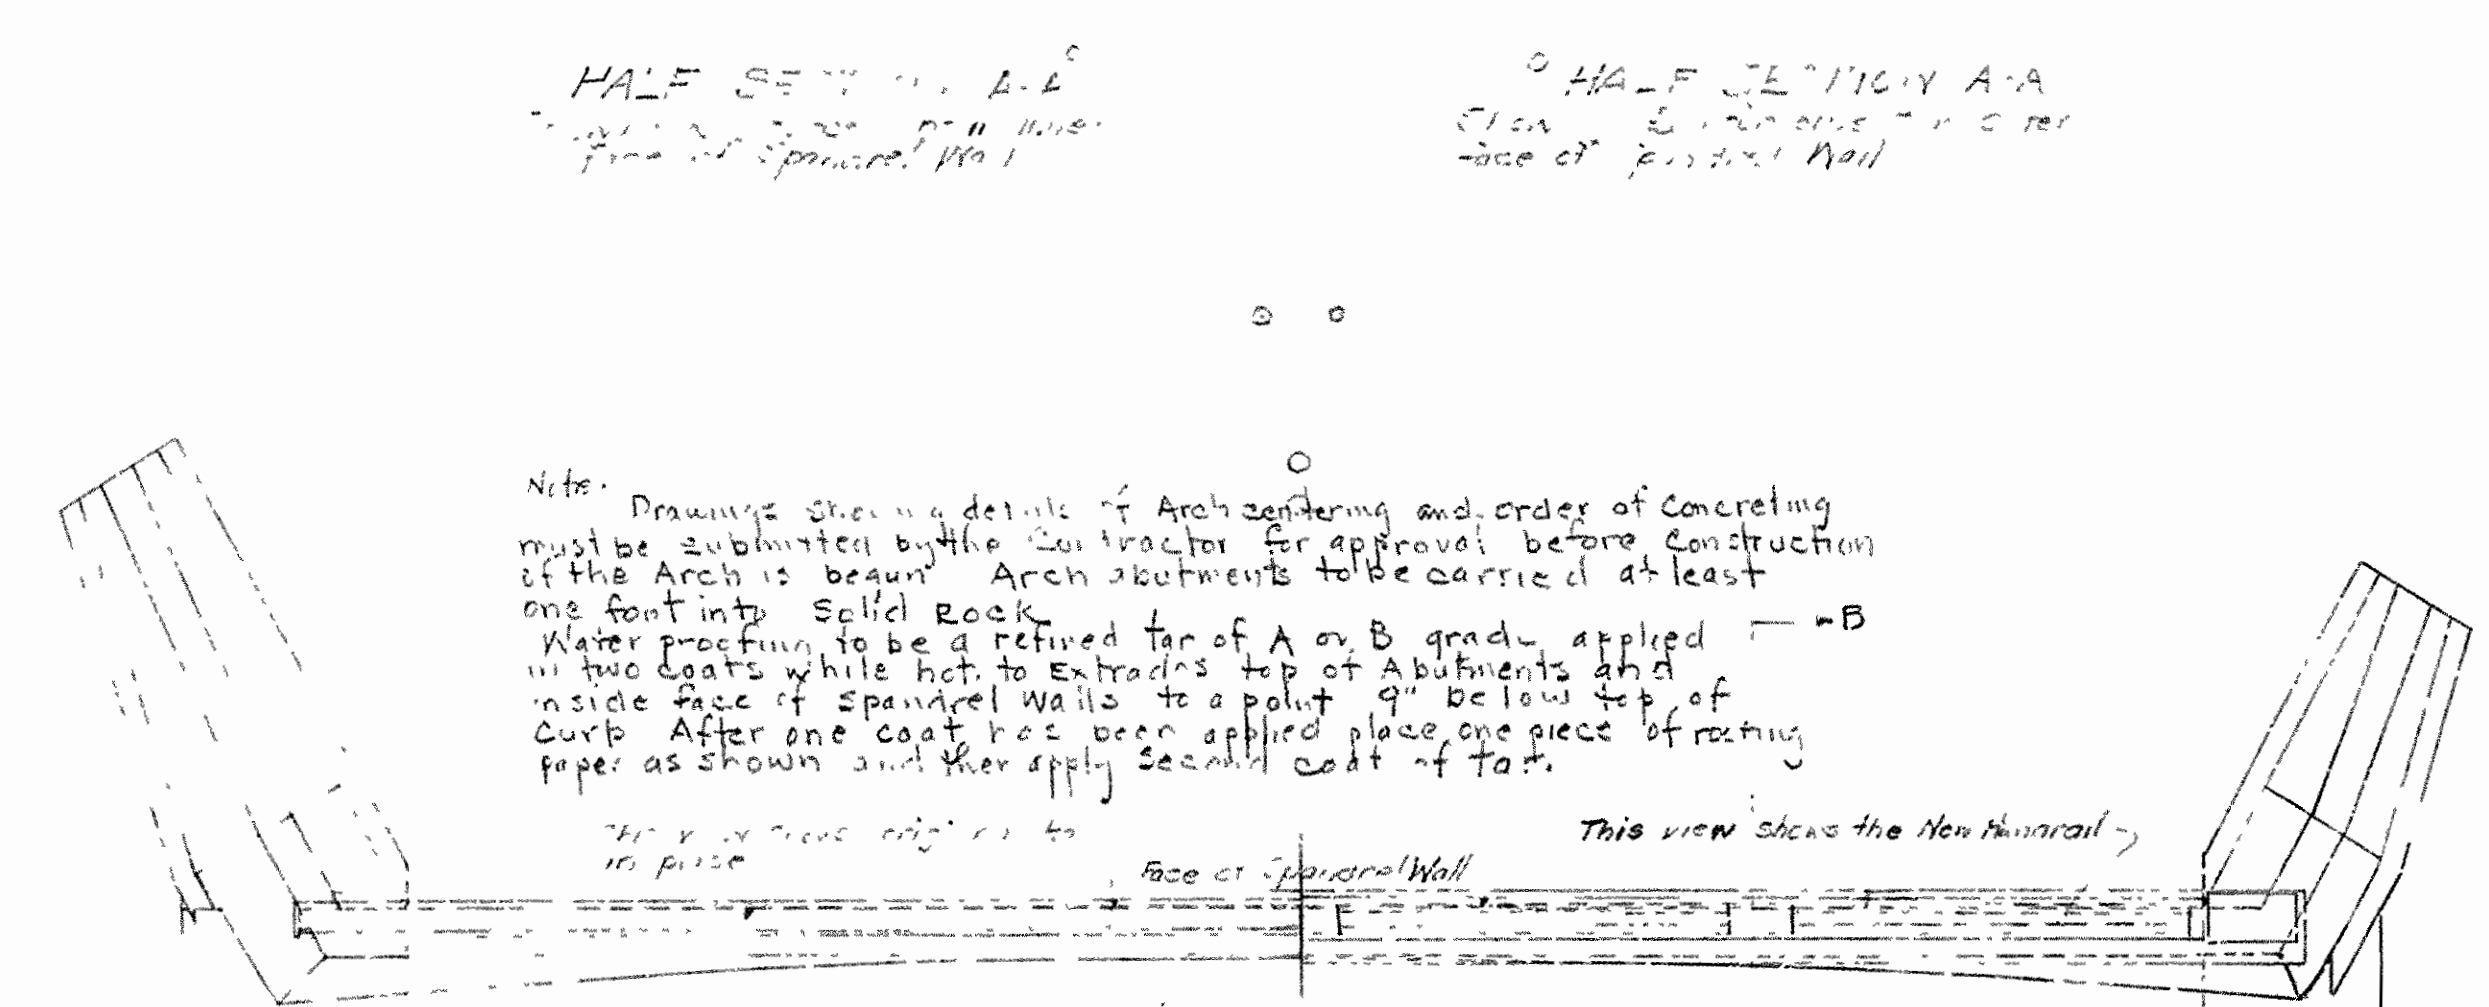 HALF SECTION A-A
HALF SECTION A-A
face of Spandrel Wall
face of Wall
Note.
Drawings showing details of Arch centering and order of Concreting
must be submitted by the Contractor for approval before Construction
of the Arch is begun Arch abutments to be carried at least
one foot into Solid Rock
Water proofing to be a refined tar of A or B grade applied
in two coats while hot. to Extrados top of Abutments and
inside face of Spandrel Walls to a point 9" below top of
Curb After one coat has been applied place one piece of roofing
paper as shown and then apply Second coat of tar.
B
in place
Face of Spandrel Wall
This view shows the New Handrail